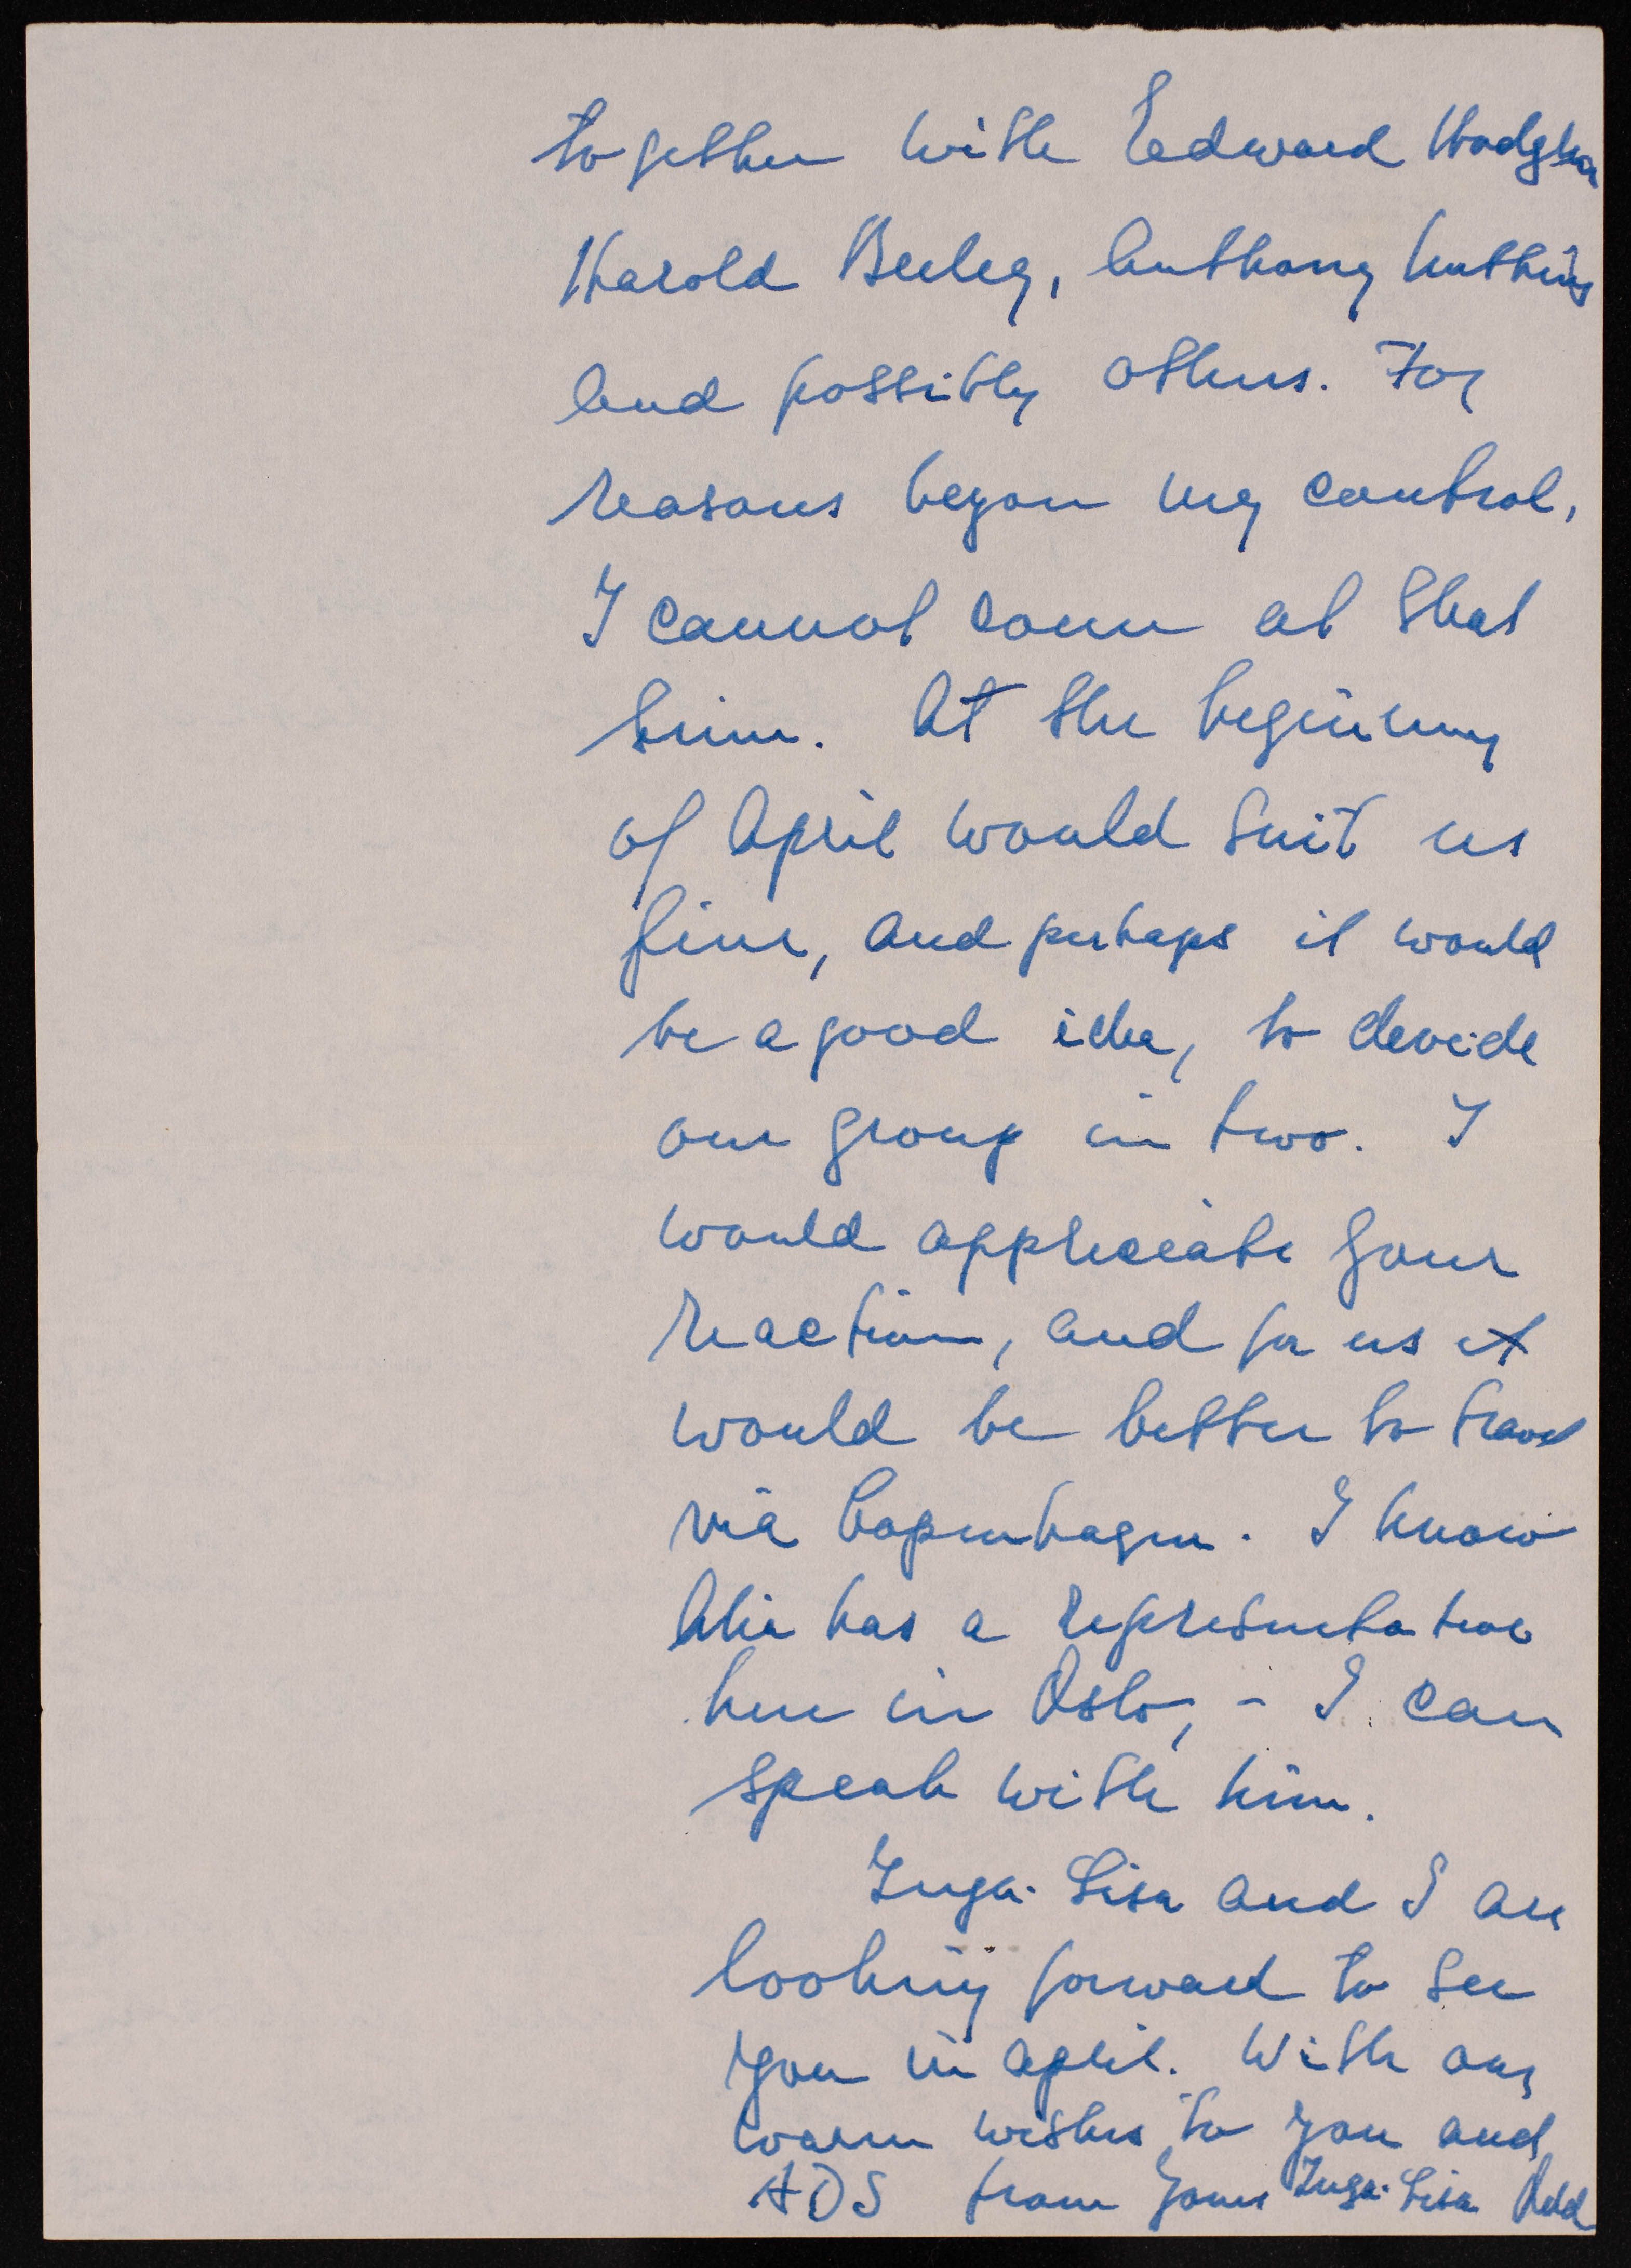 together with Edward Hodgkin
Harold Beeley, Anthony Nutting
and possibly others. For
reasons beyon my control,
I cannot come at that
time. At the beginning
of April would suit us
fine, and perhaps it would
be a good idea, to devide
our group in two. I
would appreciate your
reaction, and for us it
would be better to travel
via Copenhagen. I know
Alia has a representative
here in Oslo, - I can
speak with him.
Inga-Lisa and I are
looking forward to see
you in april. With our
warm wishes to you and
ADS from Yours Inga-Lisa Odd